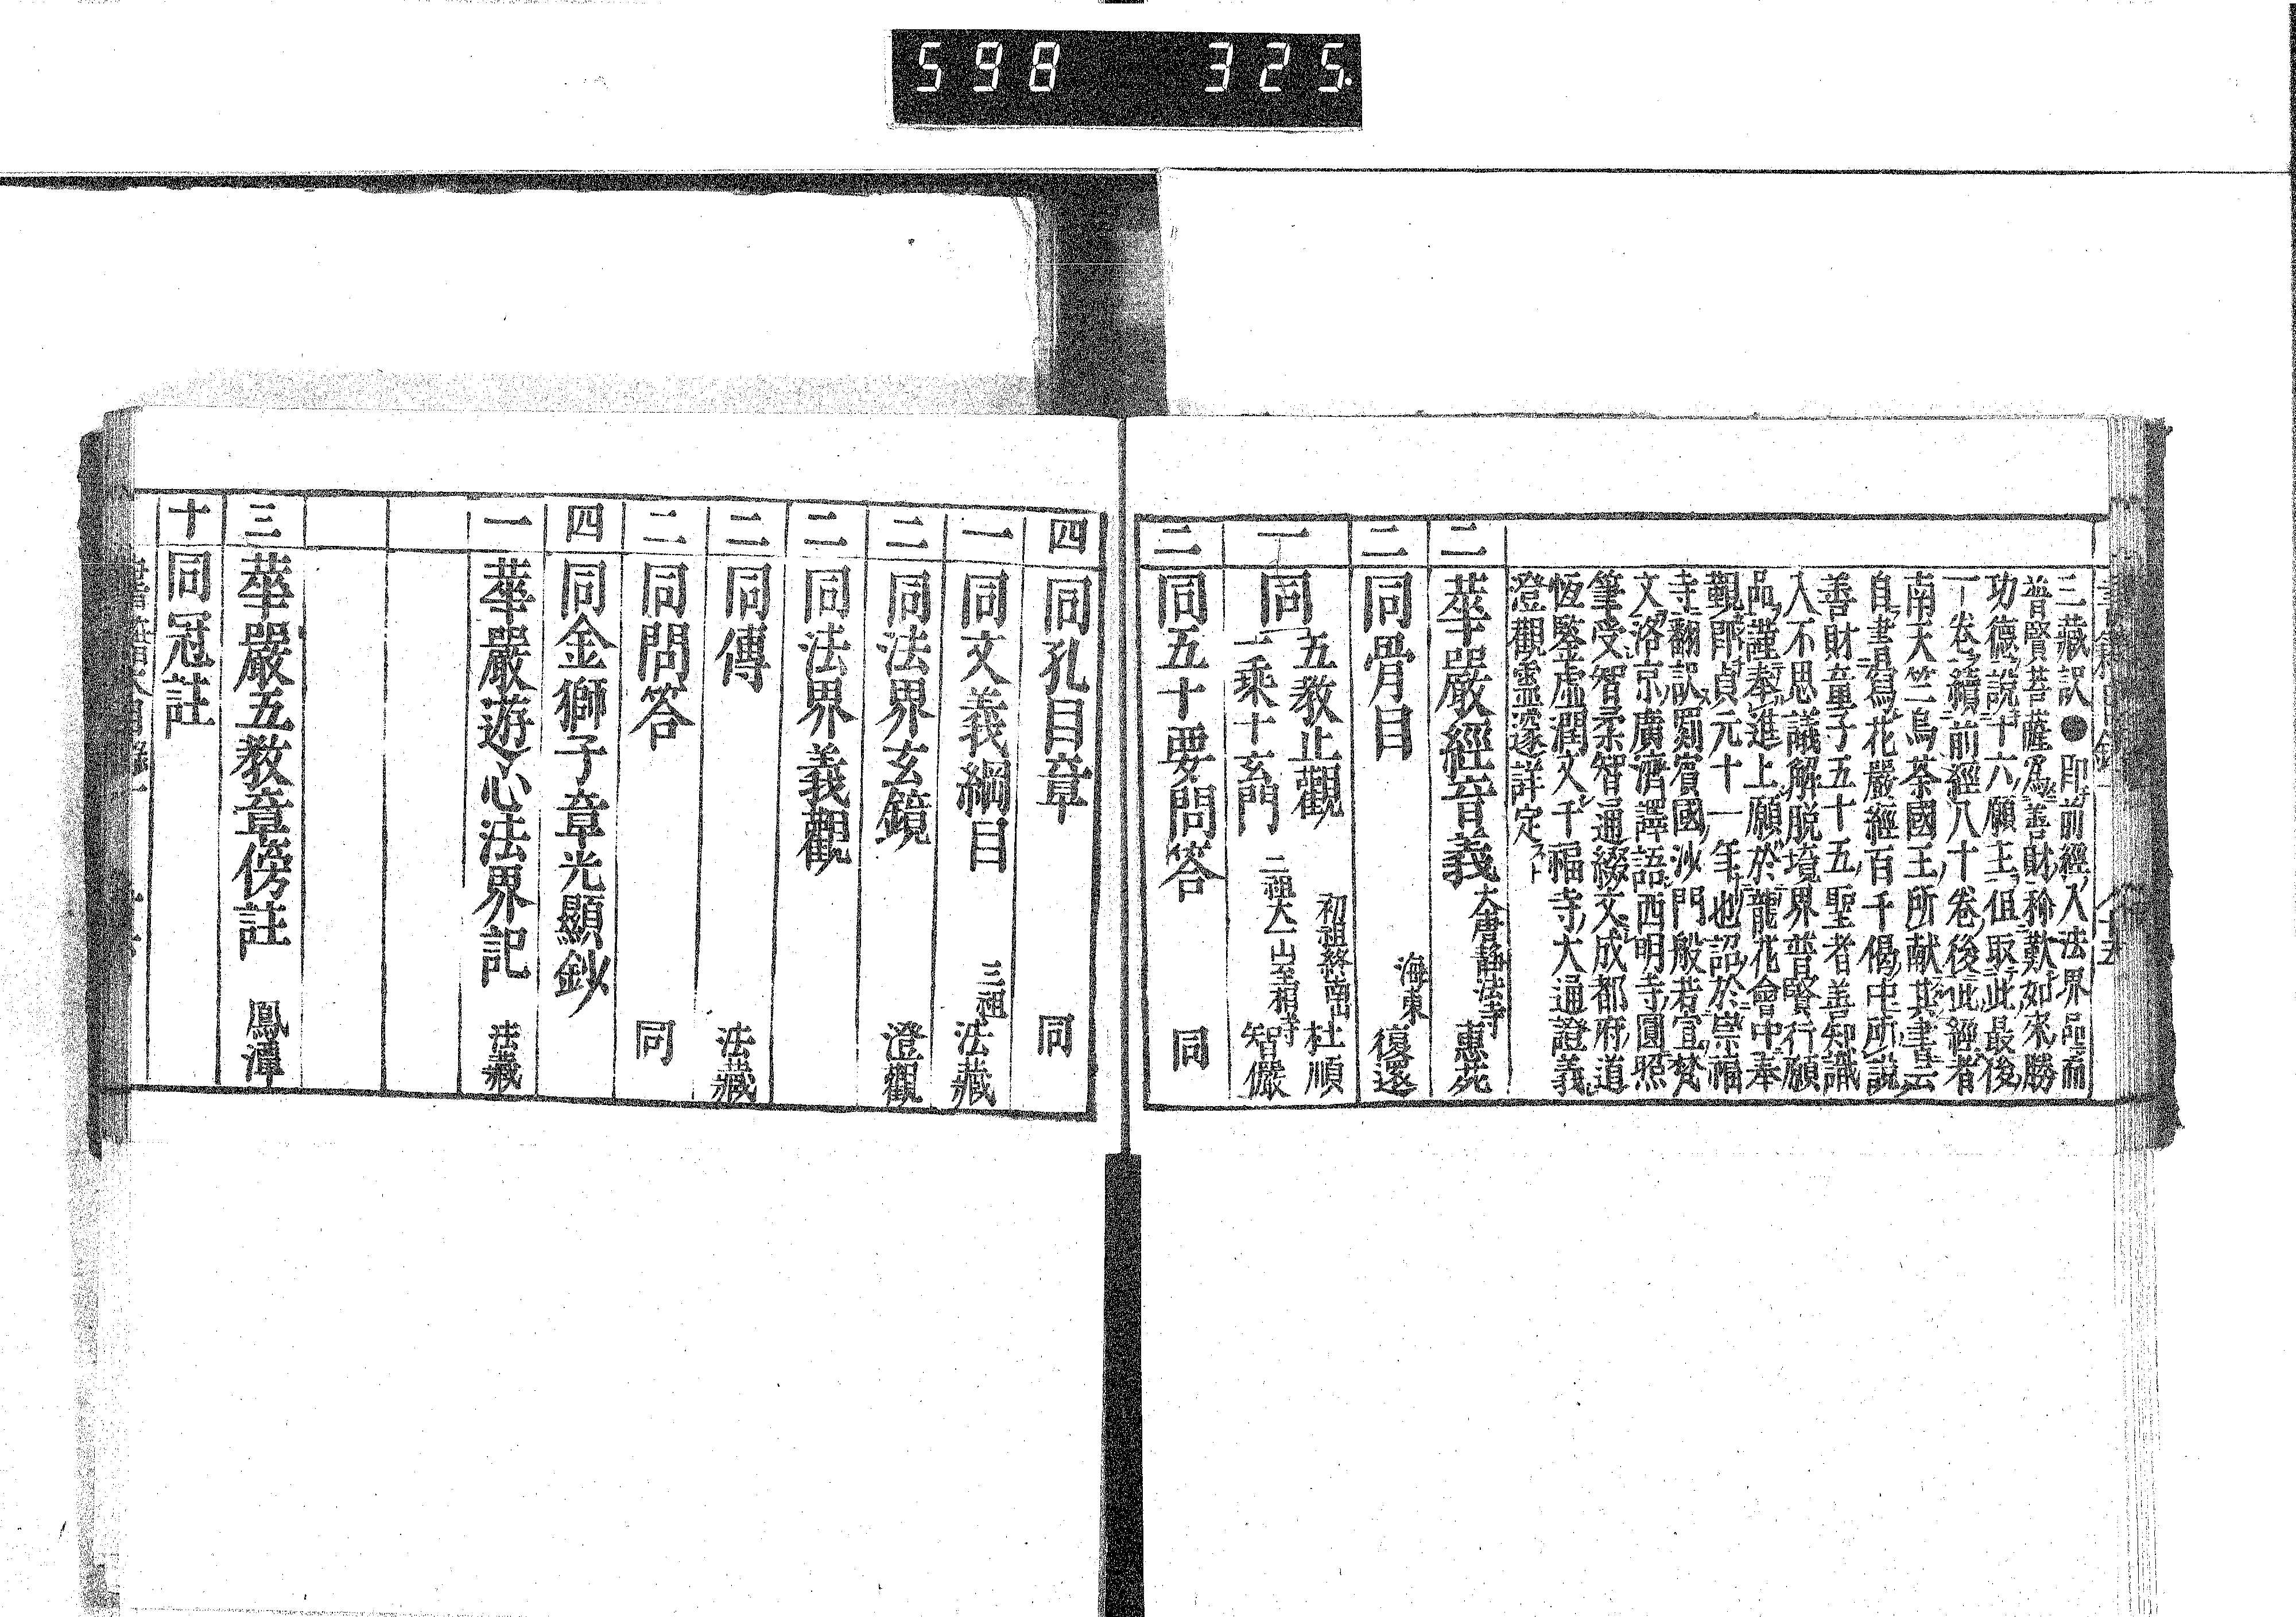 598 325.
三藏訳●即前經入法界品而
普賢菩薩為善財称歎如來勝
功徳說十六願王但取此最後
一卷續前經八十卷後此經者
南天竺烏荼國王所献其書云
自書寫花嚴經百千偈中所說
善財童子五十五聖者善知識
入不思議解脱境界普賢行願
品謹奉進上願於龍花會中奉
觀即貞元十一年也詔於崇福
寺翻訳罽賓國沙門般若宣梵
文洛京廣濟譯語西明寺圓照
筆受智柔智通綴文成都府道
恆鑒虚潤文千福寺大通證義
澄觀靈邃詳定
二 華嚴經音義 大唐静法寺 惠苑
二 同骨目 海東 復還
一 同 五教止觀 初祖終南山 杜順
一乘十玄門 二祖大一山至相寺 智儼
二 同五十要問答 同
四 同孔目章 同
一 同文義綱目 三祖 法藏
二 同法界玄鏡 澄觀
二 同法界義觀
二 同傳 法藏
二 同問答 同
四 同金獅子章光顯鈔
一 華嚴遊心法界記 法藏
三 華嚴五教章傍註 鳳潭
十 同冠註